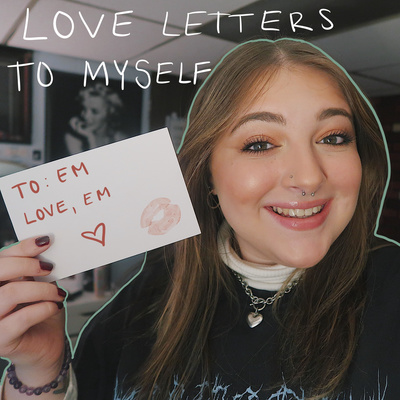 LOVE LETTERS
TO MYSELF
TO: EM
LOVE, EM